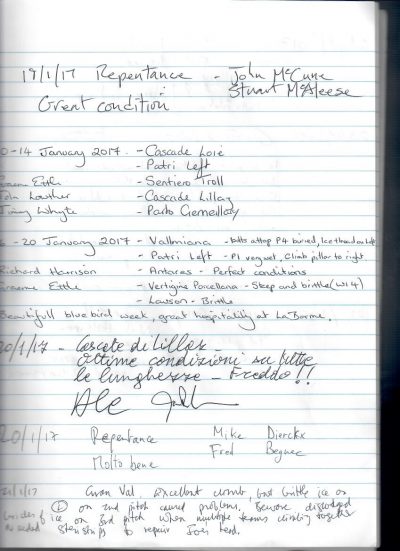 19/1/17 Repentance - John McCune
Stuart McAleese
Great condition
0-14 January 2017. - Cascade Loie
- Patri Left
Graeme Ettle - Sentiero Troll
John Lowther - Cascade Lillaz
Jimmy Whyte -
- 20 January 2017 - Valmiana - bolts atop P4 buried, Ice thread on left
- Patri Left - P1 very wet, Climb pillar to right.
Richard Harrison - Antares - Perfect conditions.
Graeme Ettle - Vertigine Porcellana - Steep and brittle (WI4)
- Lawson - Brittle
Beautifull blue bird week, great hospitality at La Barme.
20/1/17 - Cascate di Lillaz -
Ottime condizioni su tutte
le lunghezze - Freddo!!
Ale
20/1/17 Repentance Mike Dierckx
Fred
Molto bene
21/1/17 Gran Val. Excellent climb, but brittle ice on
on 2nd pitch caused problems. Beware dislodged
ice on 2nd pitch when multiple teams climbing together
as needed steristrips to repair Joe's head.